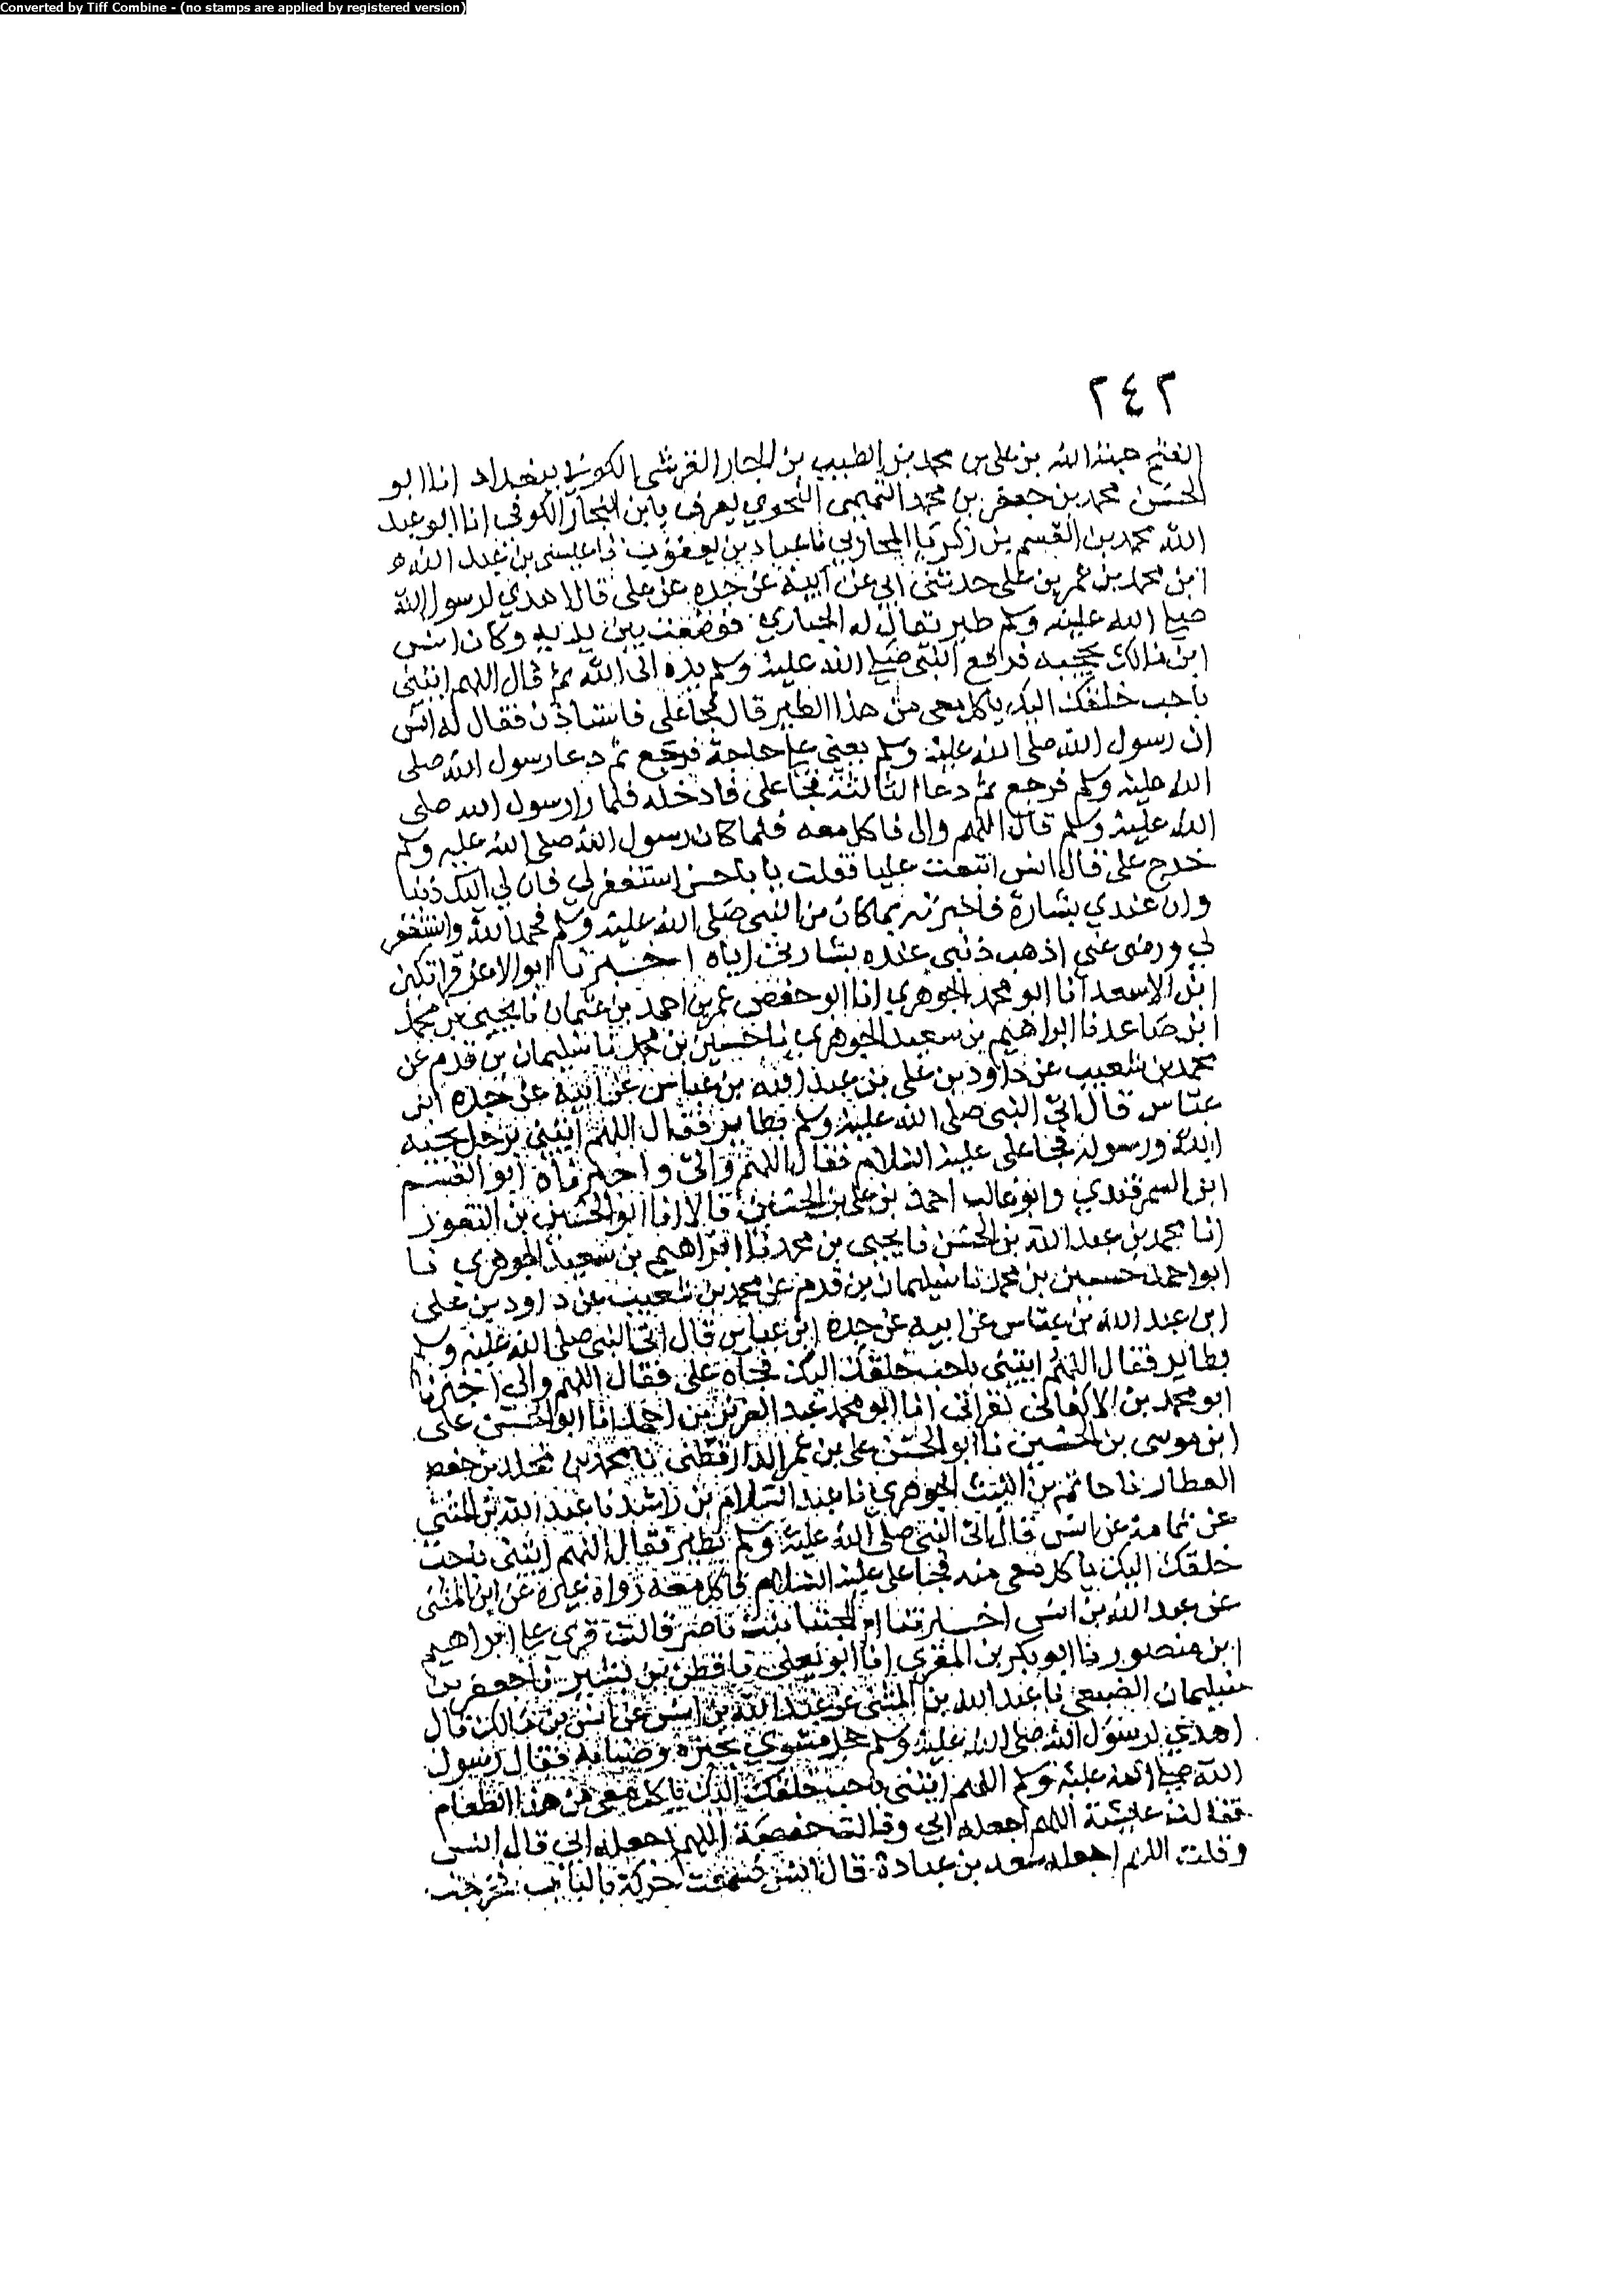 Converted by Tiff Combine - (no stamps are applied by registered version)
٢٤٢
الفتح هبة الله بن علي بن محمد بن الطبيب بن الجار القرشي الكوفي ببغداد انا ابو
الحسن محمد بن جعفر بن محمد التميمي النحوي يعرف بابن النجار الكوفي انا ابو عبد
الله محمد بن القسم بن زكريا المحاربي نا عباد بن يعقوب نا عيسى بن عبد الله
ابن محمد بن عمر بن علي حدثني ابي عن ابيه عن جده عن علي قال اهدي لرسول الله
صلى الله عليه وسلم طير يقال له الحباري فوضعت بين يديه وكان انس
ابن مالك يحجبه فرفع النبي صلى الله عليه وسلم يده الى الله ثم قال اللهم ائتني
باحب خلقك اليك ياكل معي من هذا الطير قال فجا علي فاستاذن فقال له انس
ان رسول الله صلى الله عليه وسلم يعني على حاجة فرجع ثم دعا رسول الله صلى
الله عليه وسلم فرجع ثم دعا الثالثة فجا علي فادخله فلما راه رسول الله صلى
الله عليه وسلم قال اللهم والي فاكل معه فلما كان رسول الله صلى الله عليه وسلم
خرج علي قال انس اتبعت عليا فقلت يا باحسن استغفر لي فان لي اليك ذنبا
وان عندي بشارة فاخبرته بما كان من النبي صلى الله عليه وسلم فحمد الله واستغفر
لي ورضي عني اذهب ذنبي عنده بشارتي اياه اخبرنا ابو الاعز قراتكين
ابن الاسعد انا ابو محمد الجوهري انا ابو حفص عمر بن احمد بن عثمان نا يحيى بن محمد
ابن صاعد نا ابراهيم بن سعيد الجوهري نا حسين بن محمد نا سليمان بن قرم عن
محمد بن شعيب عن داود بن علي بن عبد الله بن عباس عن ابيه عن جده ابن
عباس قال اتي النبي صلى الله عليه وسلم بطاير فقال اللهم ائتني برجل يحبه
الله ورسوله فجا علي عليه السلام فقال اللهم والي واخبرناه ابو القسم
ابن السمرقندي وابو غالب احمد بن علي بن الحسين قالا انا ابو الحسين بن النقور
انا محمد بن عبد الله بن الحسن نا يحيى بن محمد نا ابراهيم بن سعيد الجوهري نا
ابو احمد حسين بن محمد نا سليمان بن قرم عن محمد بن شعيب عن داود بن علي
ابن عبد الله بن عباس عن ابيه عن جده ابن عباس قال اتي النبي صلى الله عليه وسلم
بطاير فقال اللهم ائتني باحب خلقك اليك فجاه علي فقال اللهم والي اخبرنا
ابو محمد بن الاكفاني بقراتي انا ابو محمد عبد العزيز بن احمد انا ابو الحسن علي
ابن موسى بن الحسين نا ابو الحسن علي بن عمر الدارقطني نا محمد بن مخلد بن حفص
العطار نا حاتم بن الليث الجوهري نا عبد السلام بن راشد نا عبد الله بن المثنى
عن ثمامة عن انس قال اتي النبي صلى الله عليه وسلم بطير فقال اللهم ائتني باحب
خلقك اليك ياكل معي منه فجا علي عليه السلام فاكل معه رواه غيره عن ابن المثنى
عن عبد الله بن انس اخبرتنا ام المجتبا بنت ناصر قالت قري على ابراهيم
ابن منصور نا ابو بكر بن المقري انا ابو يعلى نا قطن بن نسير نا جعفر بن
سليمان الضبعي نا عبد الله بن المثنى عن عبد الله بن انس عن انس بن مالك قال
اهدي لرسول الله صلى الله عليه وسلم حجل مشوي بخبزه وصنابه فقال رسول
الله صلى الله عليه وسلم اللهم ائتني باحب خلقك اليك ياكل معي من هذا الطعام
فقالت عايشة اللهم اجعله ابي وقالت حفصة اللهم اجعله ابي قال انس
وقلت اللهم اجعله سعد بن عبادة قال انس فسمعت حركة بالباب فخرجت